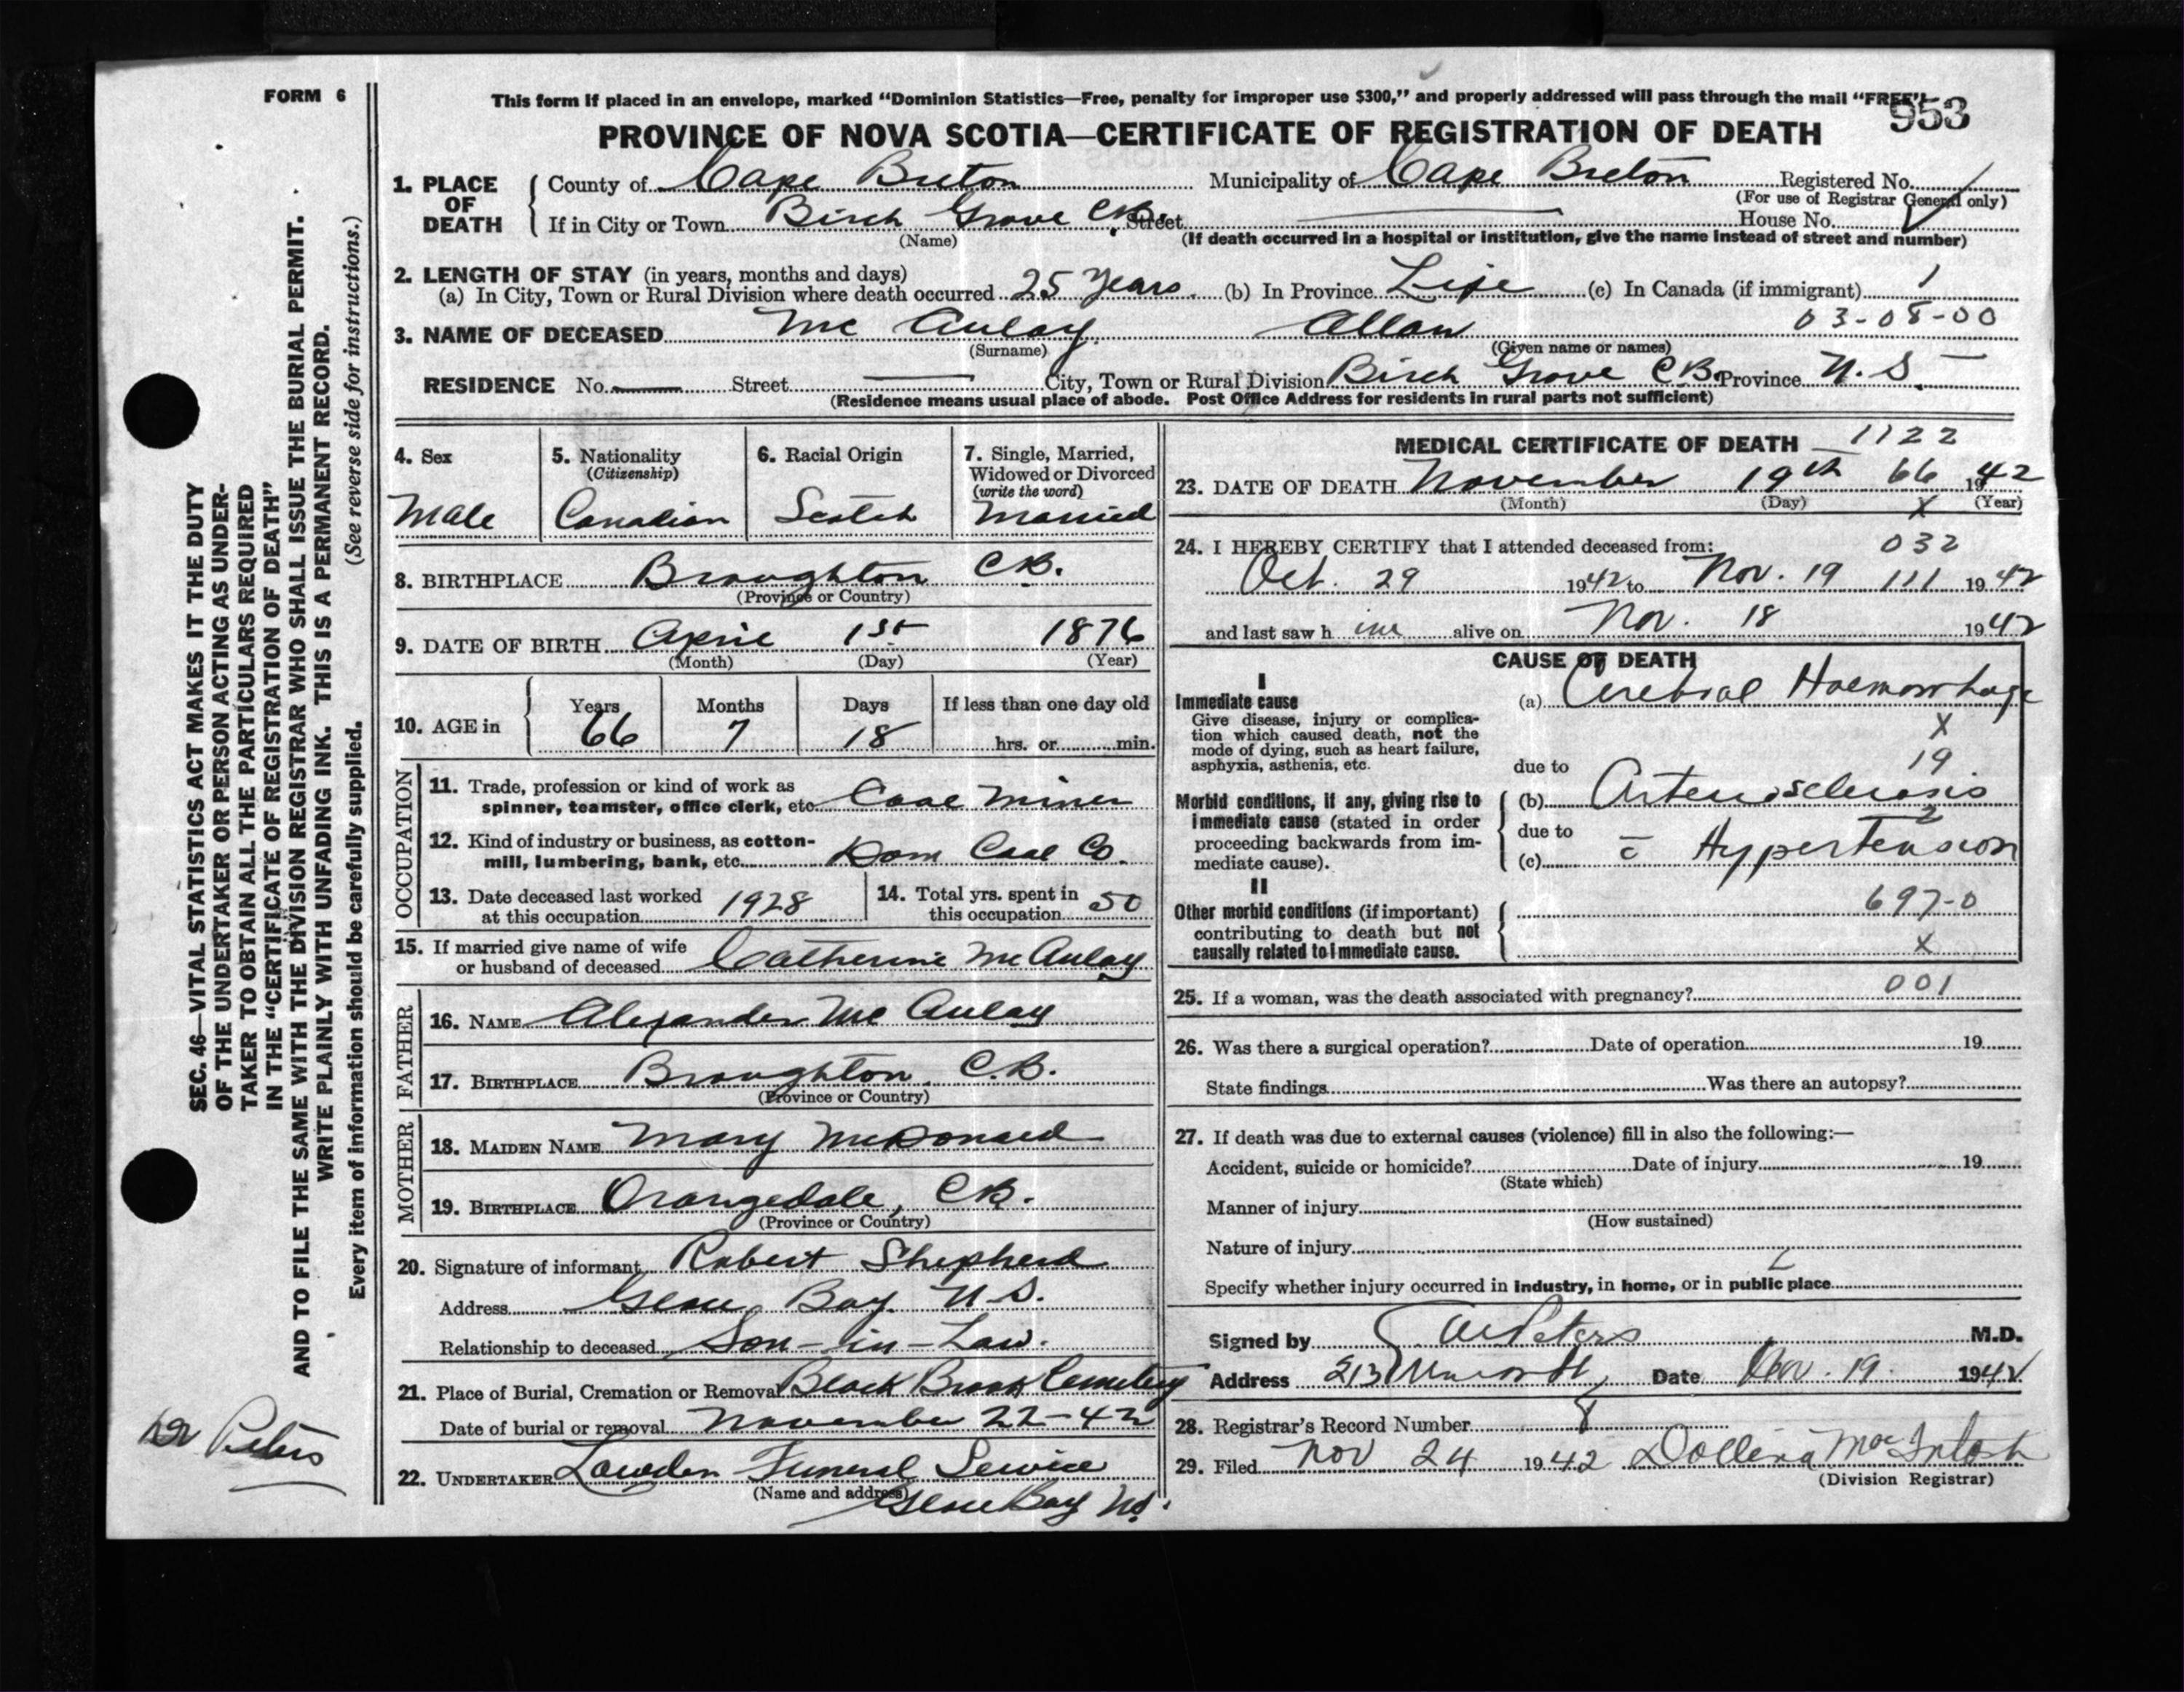 FORM 6
This form if placed in an envelope, marked “Dominion Statistics—Free, penalty for improper use $300,” and properly addressed will pass through the mail “FREE”.
953
PROVINCE OF NOVA SCOTIA—CERTIFICATE OF REGISTRATION OF DEATH
1. PLACE OF DEATH
County of Cape Breton Municipality of Cape Breton Registered No.
(For use of Registrar General only)
If in City or Town Birch Grove C.B. Street House No.
(Name) (If death occurred in a hospital or institution, give the name instead of street and number)
2. LENGTH OF STAY (in years, months and days)
(a) In City, Town or Rural Division where death occurred 25 years (b) In Province Life (c) In Canada (if immigrant) 1
03-08-00
3. NAME OF DECEASED Mc Aulay, Allan
(Surname) (Given name or names)
RESIDENCE No. — Street — City, Town or Rural Division Birch Grove C.B. Province N.S.
(Residence means usual place of abode. Post Office Address for residents in rural parts not sufficient)
4. Sex
Male
5. Nationality
(Citizenship)
Canadian
6. Racial Origin
Scotch
7. Single, Married, Widowed or Divorced
(write the word)
Married
8. BIRTHPLACE Broughton C.B.
(Province or Country)
9. DATE OF BIRTH April 1st 1876
(Month) (Day) (Year)
10. AGE in
Years Months Days If less than one day old
66 7 18 hrs. or min.
OCCUPATION
11. Trade, profession or kind of work as
spinner, teamster, office clerk, etc. Coal Miner
12. Kind of industry or business, as cotton-
mill, lumbering, bank, etc. Dom Coal Co.
13. Date deceased last worked
at this occupation 1928
14. Total yrs. spent in
this occupation 50
15. If married give name of wife
or husband of deceased Catherine McAulay
FATHER
16. NAME Alexander Mc Aulay
17. BIRTHPLACE Broughton, C.B.
(Province or Country)
MOTHER
18. MAIDEN NAME Mary McDonald
19. BIRTHPLACE Orangedale, C.B.
(Province or Country)
20. Signature of informant Robert Shepherd
Address Glace Bay N.S.
Relationship to deceased Son-in-Law.
21. Place of Burial, Cremation or Removal Black Brook Cemetery
Date of burial or removal November 22-42
22. UNDERTAKER Lowden Funeral Service
(Name and address)
Glace Bay N.S.
MEDICAL CERTIFICATE OF DEATH 1122
23. DATE OF DEATH November 19th 66 1942
(Month) (Day) X (Year)
24. I HEREBY CERTIFY that I attended deceased from: 032
Oct. 29 1942 to Nov. 19 111 1942
and last saw him alive on Nov. 18 1942
CAUSE OF DEATH
I
Immediate cause
Give disease, injury or complica-
tion which caused death, not the
mode of dying, such as heart failure,
asphyxia, asthenia, etc.
(a) Cerebral Haemorrhage
X
19
due to
Morbid conditions, if any, giving rise to
immediate cause (stated in order
proceeding backwards from im-
mediate cause).
(b) Arteriosclerosis
2
due to
(c) c̄ Hypertension
II
Other morbid conditions (if important)
contributing to death but not
causally related to immediate cause.
697-0
X
25. If a woman, was the death associated with pregnancy? 001
26. Was there a surgical operation? Date of operation 19
State findings Was there an autopsy?
27. If death was due to external causes (violence) fill in also the following:—
Accident, suicide or homicide? Date of injury 19
(State which)
Manner of injury
(How sustained)
Nature of injury
Specify whether injury occurred in industry, in home, or in public place
Signed by Peters M.D.
Address Date Nov. 19 1942
28. Registrar's Record Number 8
29. Filed Nov 24 1942 Dollena MacIntosh
(Division Registrar)
SEC. 46—VITAL STATISTICS ACT MAKES IT THE DUTY
OF THE UNDERTAKER OR PERSON ACTING AS UNDER-
TAKER TO OBTAIN ALL THE PARTICULARS REQUIRED
IN THE “CERTIFICATE OF REGISTRATION OF DEATH”
AND TO FILE THE SAME WITH THE DIVISION REGISTRAR WHO SHALL ISSUE THE BURIAL PERMIT.
WRITE PLAINLY WITH UNFADING INK. THIS IS A PERMANENT RECORD.
Every item of information should be carefully supplied. (See reverse side for instructions.)
Dr Peters